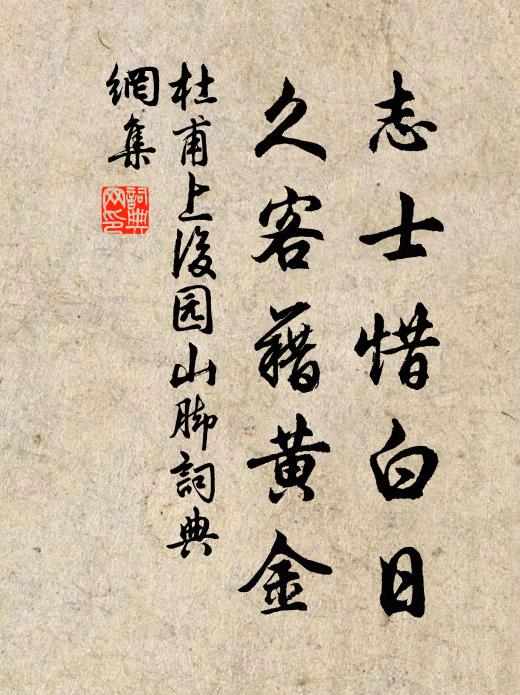 志士惜白日
久客藉黄金
杜甫上後园山脚詞典
網集
詞典網印